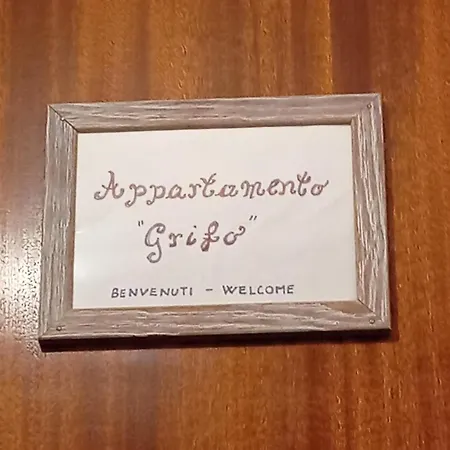 Appartamento
"Grifo"
BENVENUTI - WELCOME